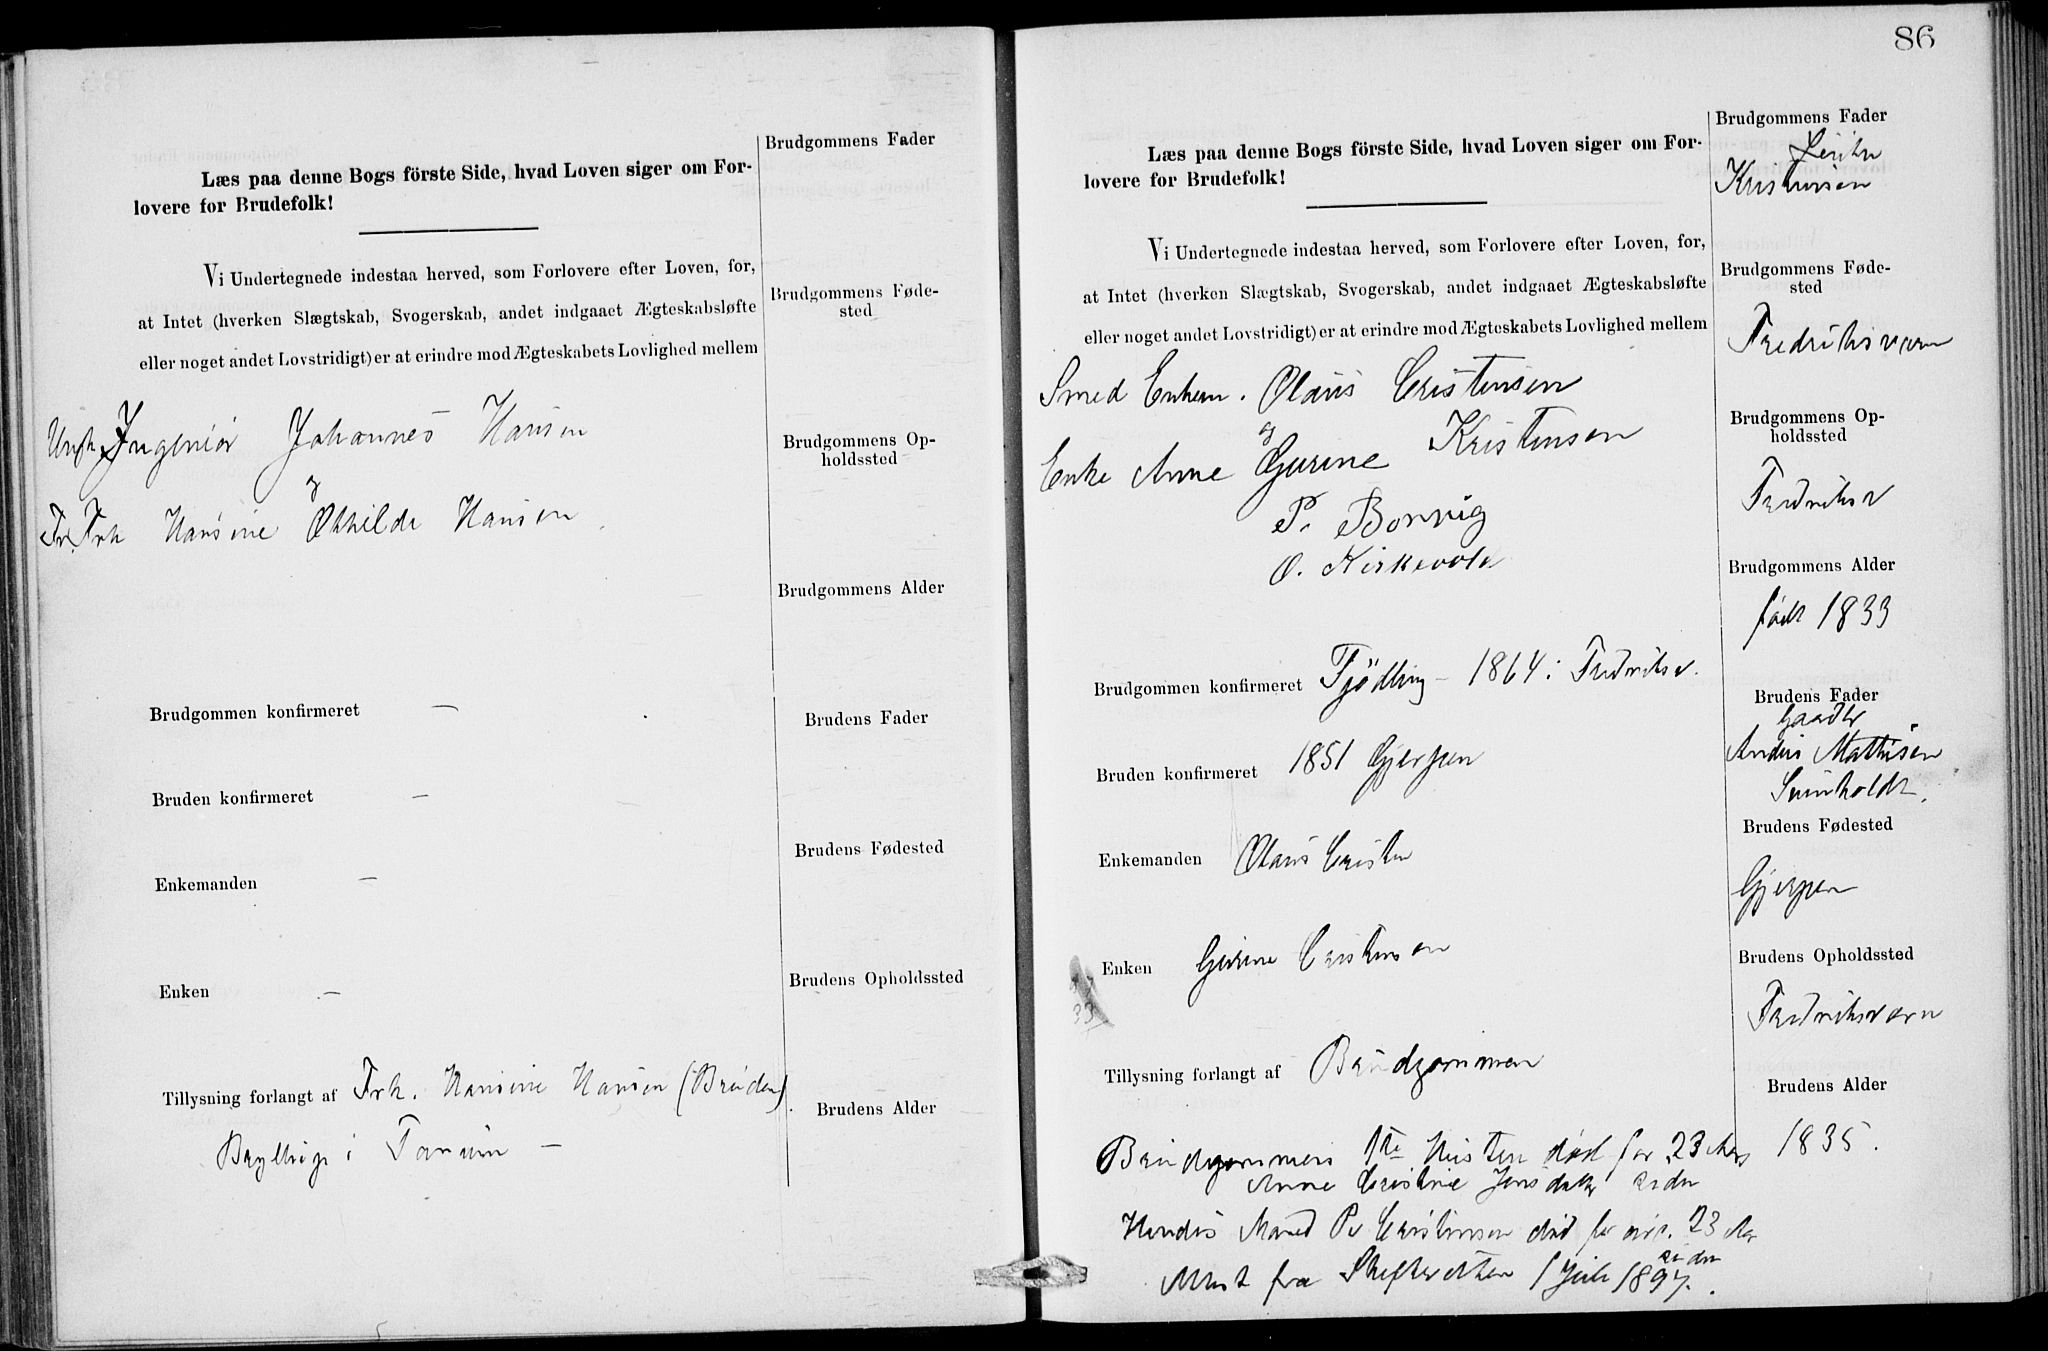 Læs paa denne Bogs förste Side, hvad Loven siger om For-
lovere for Brudefolk!
Vi Undertegnede indestaa herved, som Forlovere efter Loven, for,
at Intet (hverken Slægtskab, Svogerskab, andet indgaaet Ægteskabsløfte
eller noget andet Lovstridigt) er at erindre mod Ægteskabets Lovlighed mellem
Ungk. Ingeniör Johannes Hansen
og
Fr. Frk Hansine Othilde Hansen
Brudgommen konfirmeret —
Bruden konfirmeret —
Enkemanden —
Enken —
Tillysning forlangt af Frk. Hansine Hansen (Bruden).
Bryllup i Tanum —
Brudgommens Fader
Brudgommens Føde-
sted
Brudgommens Op-
holdssted
Brudgommens Alder
Brudens Fader
Brudens Fødested
Brudens Opholdssted
Brudens Alder
86
Læs paa denne Bogs förste Side, hvad Loven siger om For-
lovere for Brudefolk!
Vi Undertegnede indestaa herved, som Forlovere efter Loven, for,
at Intet (hverken Slægtskab, Svogerskab, andet indgaaet Ægteskabsløfte
eller noget andet Lovstridigt) er at erindre mod Ægteskabets Lovlighed mellem
Smed Enkem. Olaus Cristensen
og
Enke Anne Gurine Kristensen
P. Borrvig
O. Kirkevold
Brudgommen konfirmeret Tjödling - 1864 i Fredriksv.
Bruden konfirmeret 1851 Gjerpen
Enkemanden Olaus Cristen
Enken Gurine Cristensen
Tillysning forlangt af Brudgommen
Brudgommens 1ste Hustru död for 23 Aar
Anne Cristine Jensdatter siden
Hendes Mand P. Cristensen död for circ. 23 Aar
siden
Attest fra Skifteretten 1 Juli 1897.
Brudgommens Fader
Kristensen
Brudgommens Føde-
sted
Fredriksværn
Brudgommens Op-
holdssted
Fredriksv
Brudgommens Alder
födt 1833
Brudens Fader
Gaardbr
Anders Mathisen
Brudens Fødested
Gjerpen
Brudens Opholdssted
Fredriksværn
Brudens Alder
1835.